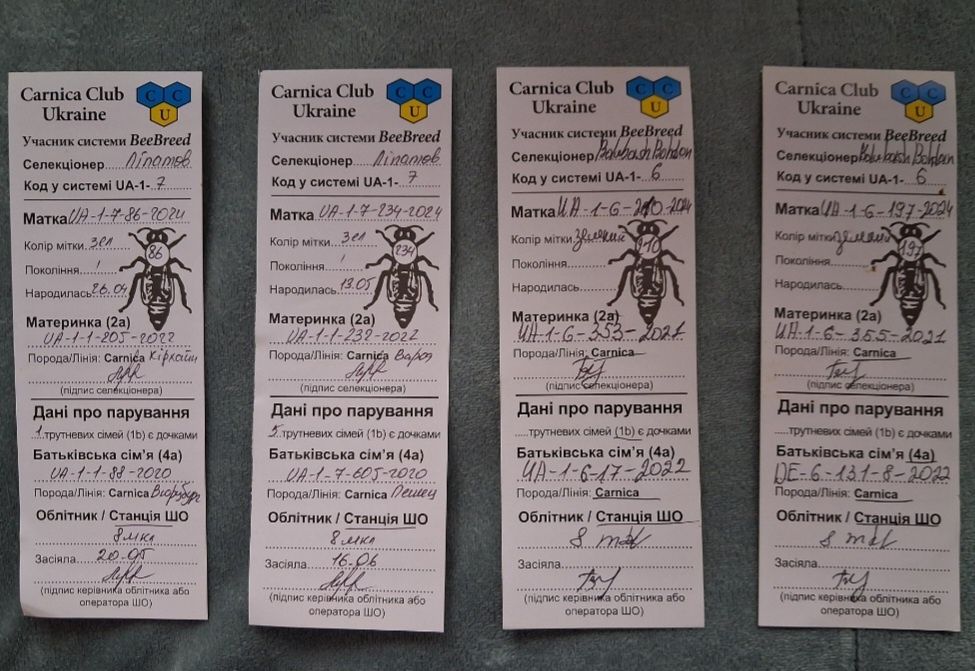 Carnica Club
Ukraine
C C U
Учасник системи BeeBreed
Селекціонер Ліпатов
Код у системі UA-1- 7
Матка UA-1-7-86-2024
Колір мітки зел
86
Покоління 1
Народилась 26.04
Материнка (2a)
UA-1-1-205-2022
Порода/Лінія: Carnica Кірхайн
(підпис селекціонера)
Дані про парування
1 трутневих сімей (1b) є дочками
Батьківська сім'я (4a)
UA-1-1-88-2020
Порода/Лінія: Carnica
Облітник / Станція ШО
8 мкл
Засіяла 20.05
(підпис керівника облітника або
оператора ШО)
Carnica Club
Ukraine
C C U
Учасник системи BeeBreed
Селекціонер Ліпатов
Код у системі UA-1- 7
Матка UA-1-7-234-2024
Колір мітки зел
234
Покоління 1
Народилась 19.05
Материнка (2a)
UA-1-1-232-2022
Порода/Лінія: Carnica
(підпис селекціонера)
Дані про парування
5 трутневих сімей (1b) є дочками
Батьківська сім'я (4a)
UA-1-7-605-2020
Порода/Лінія: Carnica Пешец
Облітник / Станція ШО
8 мкл
Засіяла 16.06
(підпис керівника облітника або
оператора ШО)
Carnica Club
Ukraine
C C U
Учасник системи BeeBreed
Селекціонер Bohdan
Код у системі UA-1- 6
Матка UA-1-6-210-2024
Колір мітки зелений
210
Покоління
Народилась
Материнка (2a)
UA-1-6-353-2021
Порода/Лінія: Carnica
(підпис селекціонера)
Дані про парування
трутневих сімей (1b) є дочками
Батьківська сім'я (4a)
UA-1-6-17-2022
Порода/Лінія: Carnica
Облітник / Станція ШО
8 mkl
Засіяла
(підпис керівника облітника або
оператора ШО)
Carnica Club
Ukraine
C C U
Учасник системи BeeBreed
Селекціонер Bohdan
Код у системі UA-1- 6
Матка UA-1-6-197-2024
Колір мітки зелений
197
Покоління
Народилась
Материнка (2a)
UA-1-6-355-2021
Порода/Лінія: Carnica
(підпис селекціонера)
Дані про парування
трутневих сімей (1b) є дочками
Батьківська сім'я (4a)
DE-6-131-8-2022
Порода/Лінія: Carnica
Облітник / Станція ШО
8 mkl
Засіяла
(підпис керівника облітника або
оператора ШО)